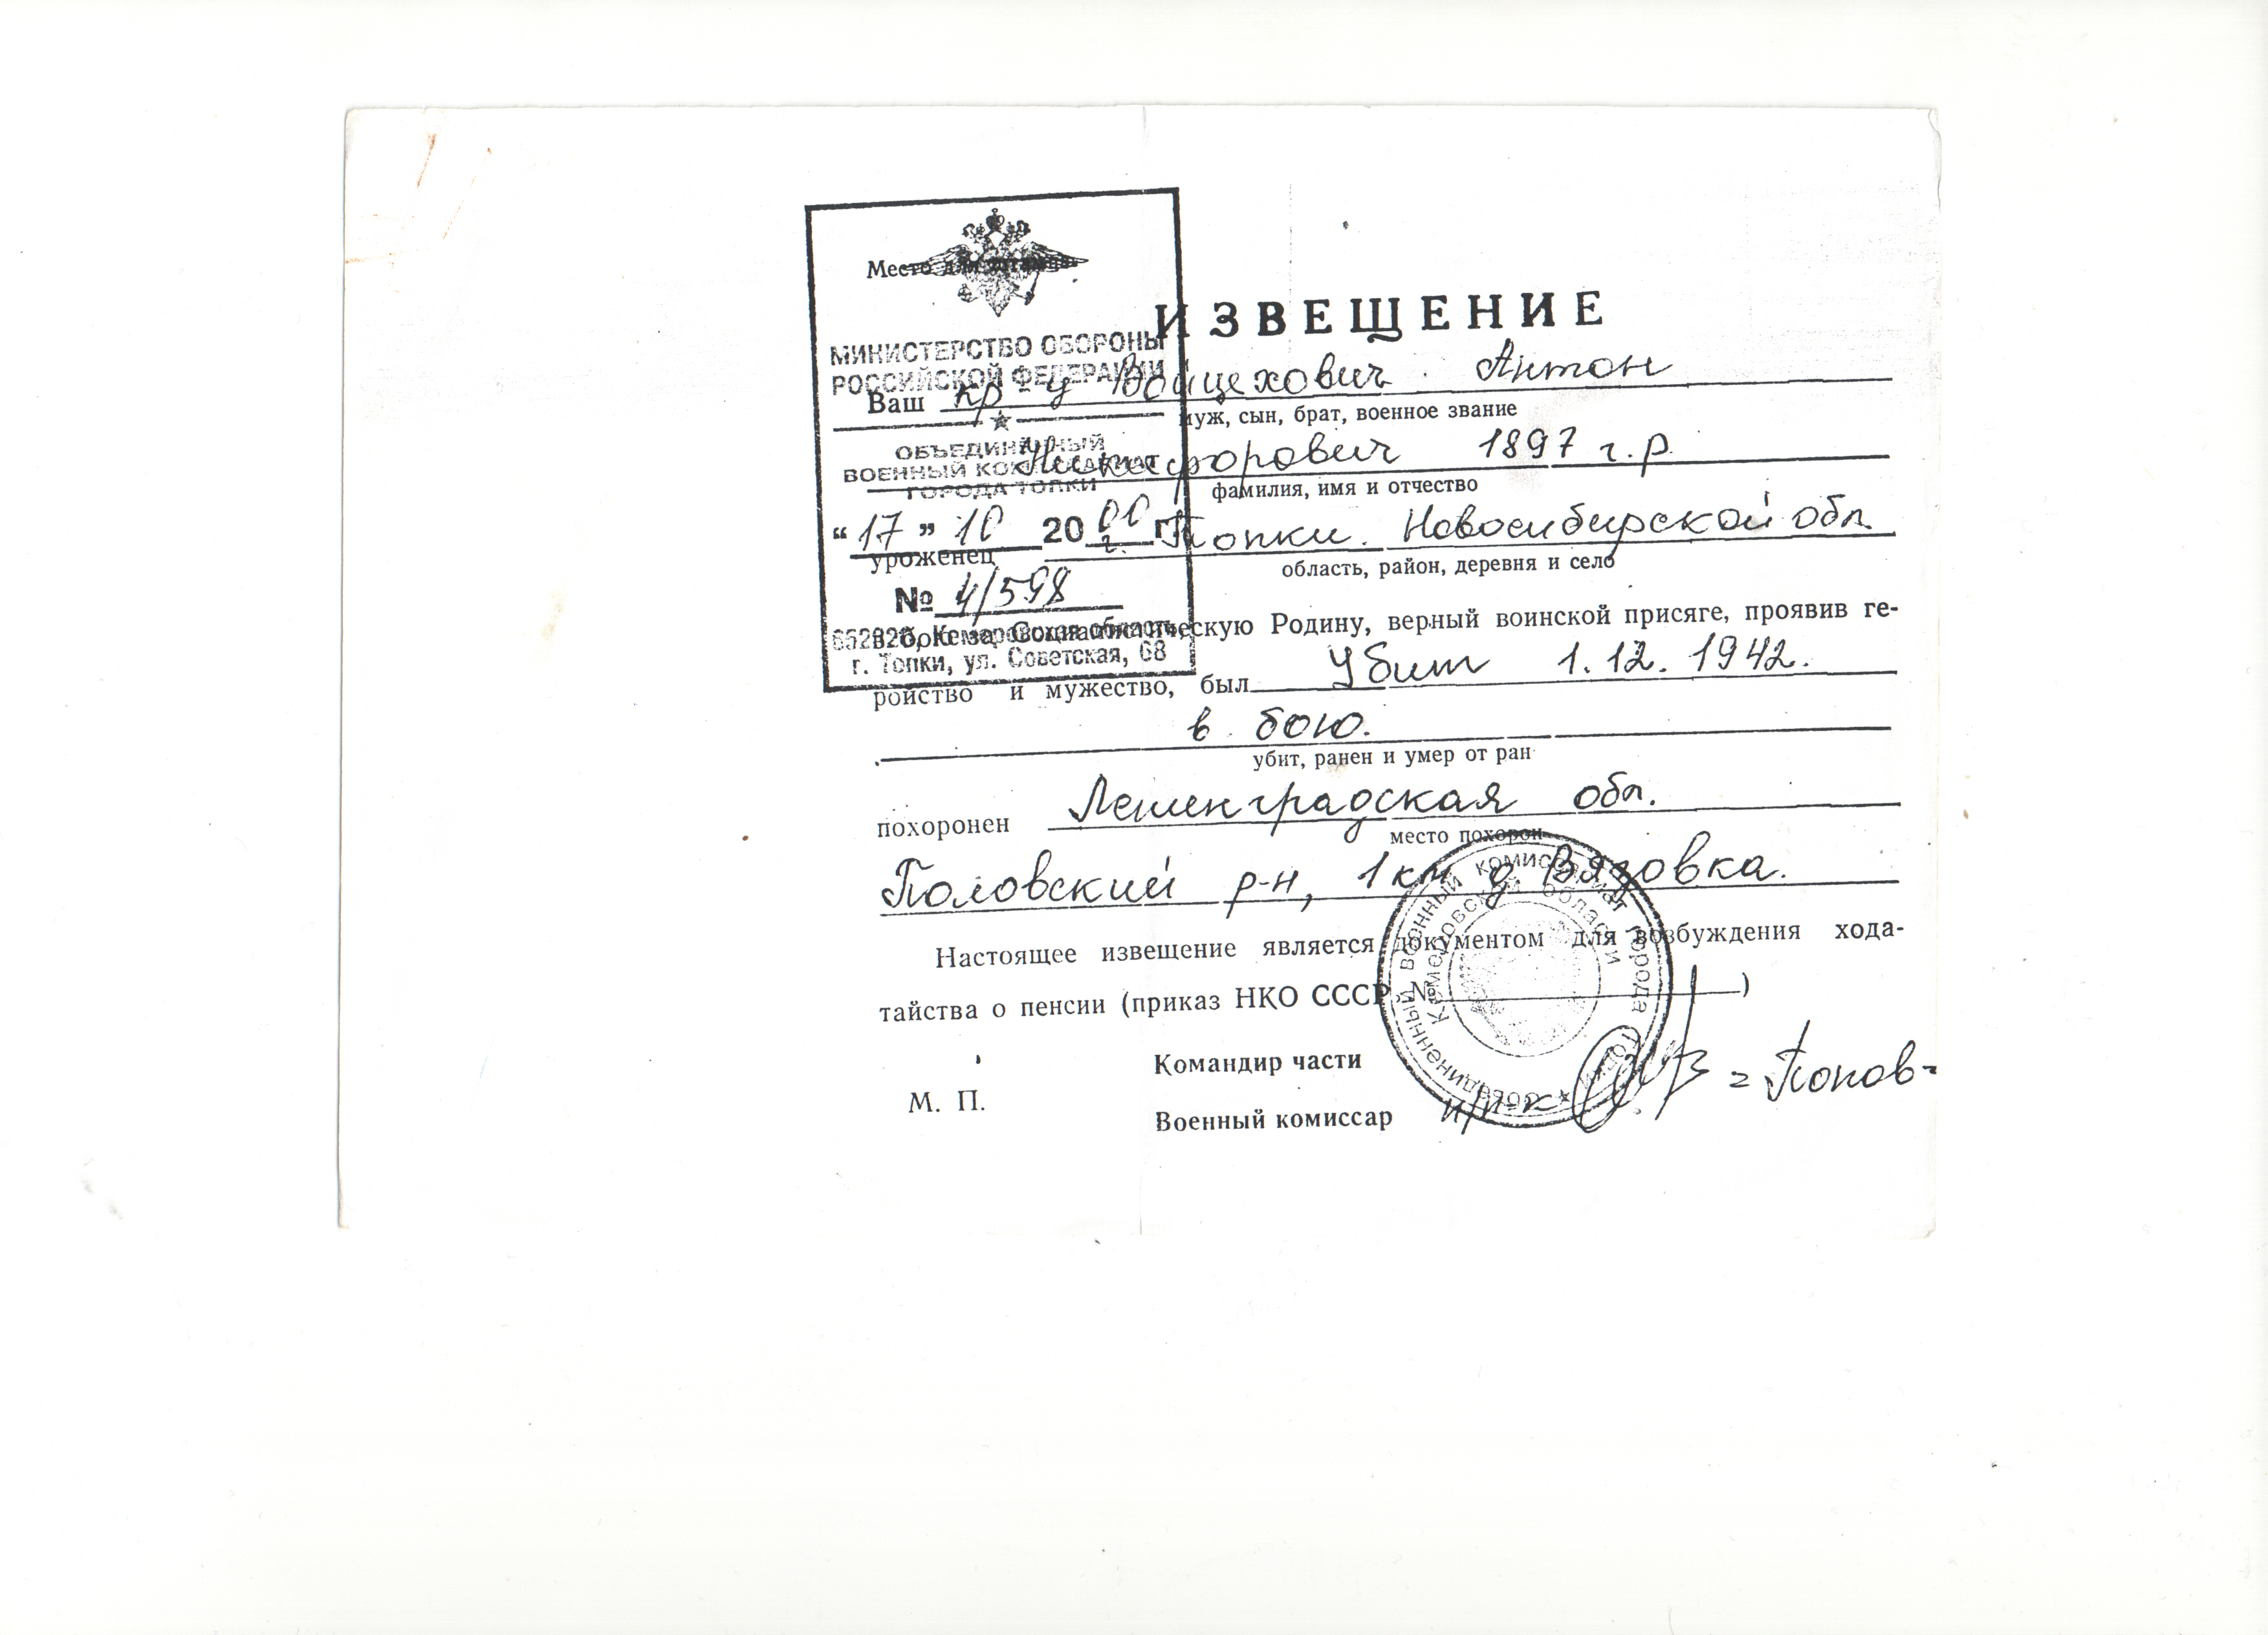 Место для штампа
МИНИСТЕРСТВО ОБОРОНЫ
РОССИЙСКОЙ ФЕДЕРАЦИИ
ОБЪЕДИНЕННЫЙ
ВОЕННЫЙ КОМИССАРИАТ
ГОРОДА ТОПКИ
“17” 10 2000 г.
№ 4/598
652320, Кемеровская область,
г. Топки, ул. Советская, 68
ИЗВЕЩЕНИЕ
Ваш кр-ц Войцехович Антон
муж, сын, брат, военное звание
Никифорович 1897 г.р.
фамилия, имя и отчество
уроженец г. Топки. Новосибирской обл.
область, район, деревня и село
в бою за Социалистическую Родину, верный воинской присяге, проявив ге-
ройство и мужество, был Убит 1.12.1942.
в бою.
убит, ранен и умер от ран
похоронен Ленинградская обл.
место похорон
Половский р-н, 1 км д. Вязовка.
Настоящее извещение является документом для возбуждения хода-
тайства о пенсии (приказ НКО СССР № )
Командир части
М. П.
Военный комиссар п/п-к =Попов-
Объединенный военный комиссариат города Топки
Кемеровской области